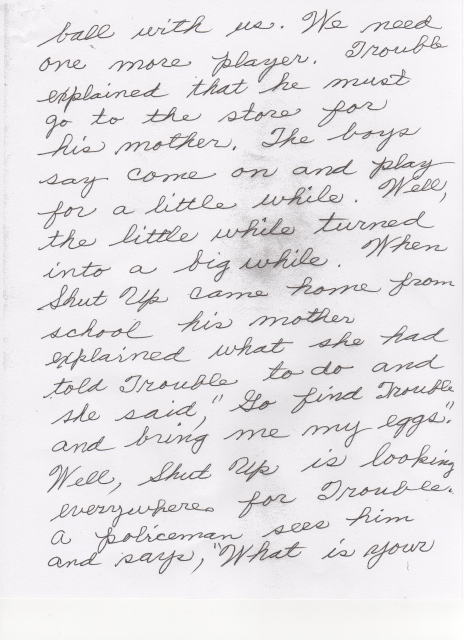 ball with us. We need
one more player. Trouble
explained that he must
go to the store for
his mother. The boys
say come on and play
for a little while. Well,
the little while turned
into a big while. When
Shut Up came home from
school his mother
explained what she had
told Trouble to do and
she said, "Go find Trouble
and bring me my eggs".
Well, Shut Up is looking
everywhere for Trouble.
a policeman sees him
and says, "What is your